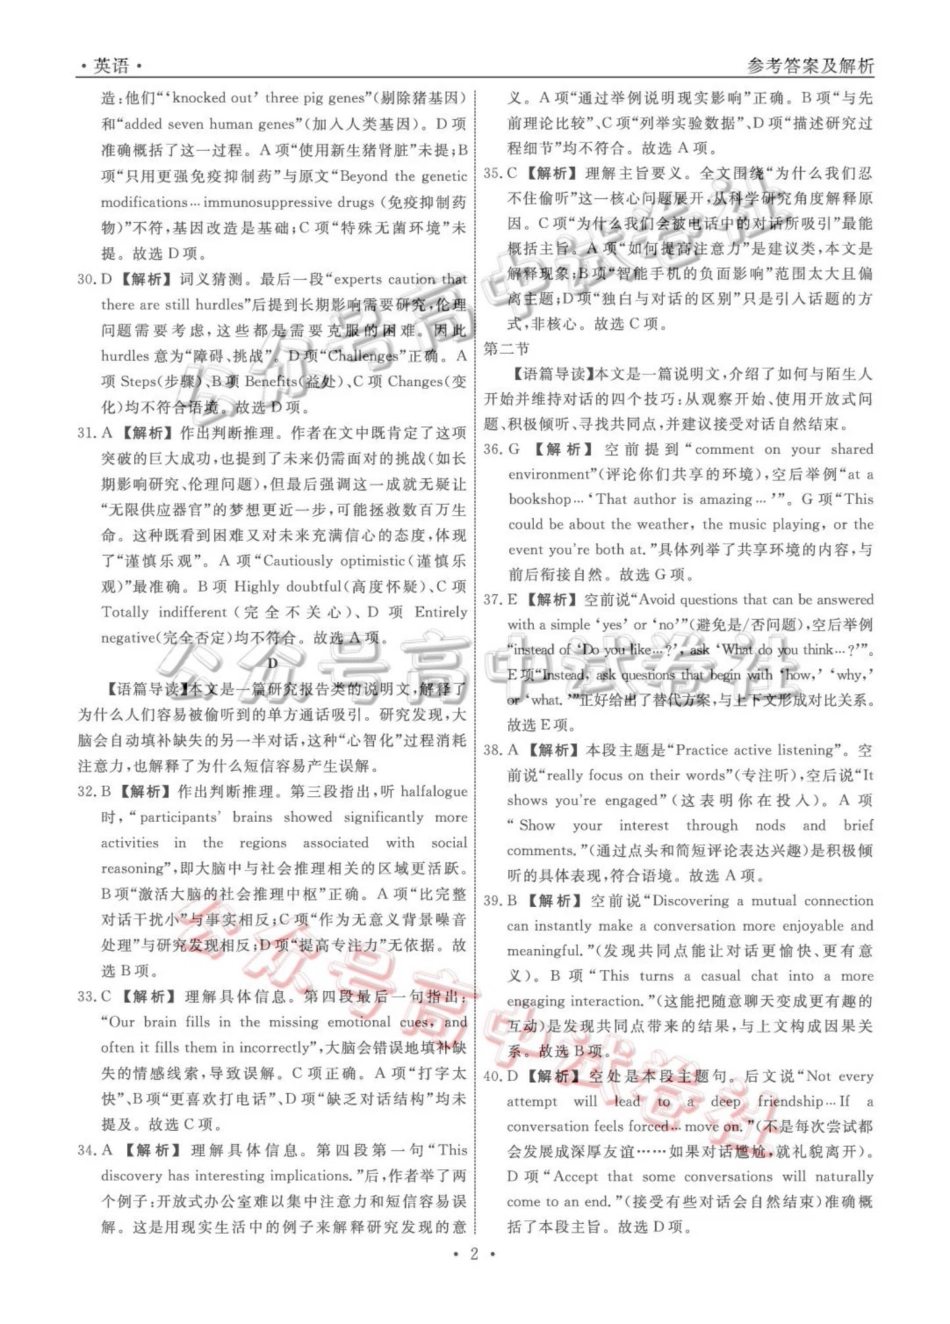 ·英语·
参考答案及解析
造:他们“‘knocked out’ three pig genes”(剔除猪基因)
和“added seven human genes”(加入人类基因)。D项
准确概括了这一过程。A项“使用新生猪肾脏”未提;B
项“只用更强免疫抑制药”与原文“Beyond the genetic
modifications…immunosuppressive drugs (免疫抑制药
物)”不符,基因改造是基础;C项“特殊无菌环境”未
提。故选D项。
30. D 【解析】词义猜测。最后一段“experts caution that
there are still hurdles”后提到长期影响需要研究,伦理
问题需要考虑,这些都是需要克服的困难。因此
hurdles意为“障碍、挑战”。D项“Challenges”正确。A
项Steps(步骤)、B项 Benefits(益处)、C项Changes(变
化)均不符合语境。故选D项。
31. A 【解析】作出判断推理。作者在文中既肯定了这项
突破的巨大成功,也提到了未来仍需面对的挑战(如长
期影响研究、伦理问题),但最后强调这一成就无疑让
“无限供应器官”的梦想更近一步,可能拯救数百万生
命。这种既看到困难又对未来充满信心的态度,体现
了“谨慎乐观”。A项“Cautiously optimistic(谨慎乐
观)”最准确。B项 Highly doubtful(高度怀疑)、C项
Totally indifferent(完全不关心)、D项 Entirely
negative(完全否定)均不符合。故选A项。
D
【语篇导读】本文是一篇研究报告类的说明文,解释了
为什么人们容易被偷听到的单方通话吸引。研究发现,大
脑会自动填补缺失的另一半对话,这种“心智化”过程消耗
注意力,也解释了为什么短信容易产生误解。
32. B 【解析】作出判断推理。第三段指出,听 halfalogue
时,“participants’ brains showed significantly more
activities in the regions associated with social
reasoning”,即大脑中与社会推理相关的区域更活跃。
B项“激活大脑的社会推理中枢”正确。A项“比完整
对话干扰小”与事实相反;C项“作为无意义背景噪音
处理”与研究发现相反;D项“提高专注力”无依据。故
选B项。
33. C 【解析】理解具体信息。第四段最后一句指出:
“Our brain fills in the missing emotional cues, and
often it fills them in incorrectly”,大脑会错误地填补缺
失的情感线索,导致误解。C项正确。A项“打字太
快”、B项“更喜欢打电话”、D项“缺乏对话结构”均未
提及。故选C项。
34. A 【解析】理解具体信息。第四段第一句“This
discovery has interesting implications.”后,作者举了两
个例子:开放式办公室难以集中注意力和短信容易误
解。这是用现实生活中的例子来解释研究发现的意
义。A项“通过举例说明现实影响”正确。B项“与先
前理论比较”、C项“列举实验数据”、D项“描述研究过
程细节”均不符合。故选A项。
35. C 【解析】理解主旨要义。全文围绕“为什么我们忍
不住偷听”这一核心问题展开,从科学研究角度解释原
因。C项“为什么我们会被电话中的对话所吸引”最能
概括主旨。A项“如何提高注意力”是建议类,本文是
解释现象;B项“智能手机的负面影响”范围太大且偏
离主题;D项“独白与对话的区别”只是引入话题的方
式,非核心。故选C项。
第二节
【语篇导读】本文是一篇说明文,介绍了如何与陌生人
开始并维持对话的四个技巧:从观察开始、使用开放式问
题、积极倾听、寻找共同点,并建议接受对话自然结束。
36. G 【解析】空前提到“comment on your shared
environment”(评论你们共享的环境),空后举例“at a
bookshop…‘That author is amazing…’”。G项“This
could be about the weather, the music playing, or the
event you're both at.”具体列举了共享环境的内容,与
前后衔接自然。故选G项。
37. E 【解析】空前说“Avoid questions that can be answered
with a simple ‘yes’ or ‘no’”(避免是/否问题),空后举例
“instead of ‘Do you like…?’, ask ‘What do you think…?’”。
E项“Instead, ask questions that begin with ‘how,’ ‘why,’
or ‘what.’”正好给出了替代方案,与上下文形成对比关系。
故选E项。
38. A 【解析】本段主题是“Practice active listening”。空
前说“really focus on their words”(专注听),空后说“It
shows you're engaged”(这表明你在投入)。A项
“Show your interest through nods and brief
comments.”(通过点头和简短评论表达兴趣)是积极倾
听的具体表现,符合语境。故选A项。
39. B 【解析】空前说“Discovering a mutual connection
can instantly make a conversation more enjoyable and
meaningful.”(发现共同点能让对话更愉快、更有意
义)。B项“This turns a casual chat into a more
engaging interaction.”(这能把随意聊天变成更有趣的
互动)是发现共同点带来的结果,与上文构成因果关
系。故选B项。
40. D 【解析】空处是本段主题句。后文说“Not every
attempt will lead to a deep friendship…If a
conversation feels forced…move on.”(不是每次尝试都
会发展成深厚友谊……如果对话尴尬,就礼貌离开)。
D项“Accept that some conversations will naturally
come to an end.”(接受有些对话会自然结束)准确概
括了本段主旨。故选D项。
·2·
公众号高中试卷社
公众号高中试卷社
公众号高中试卷社